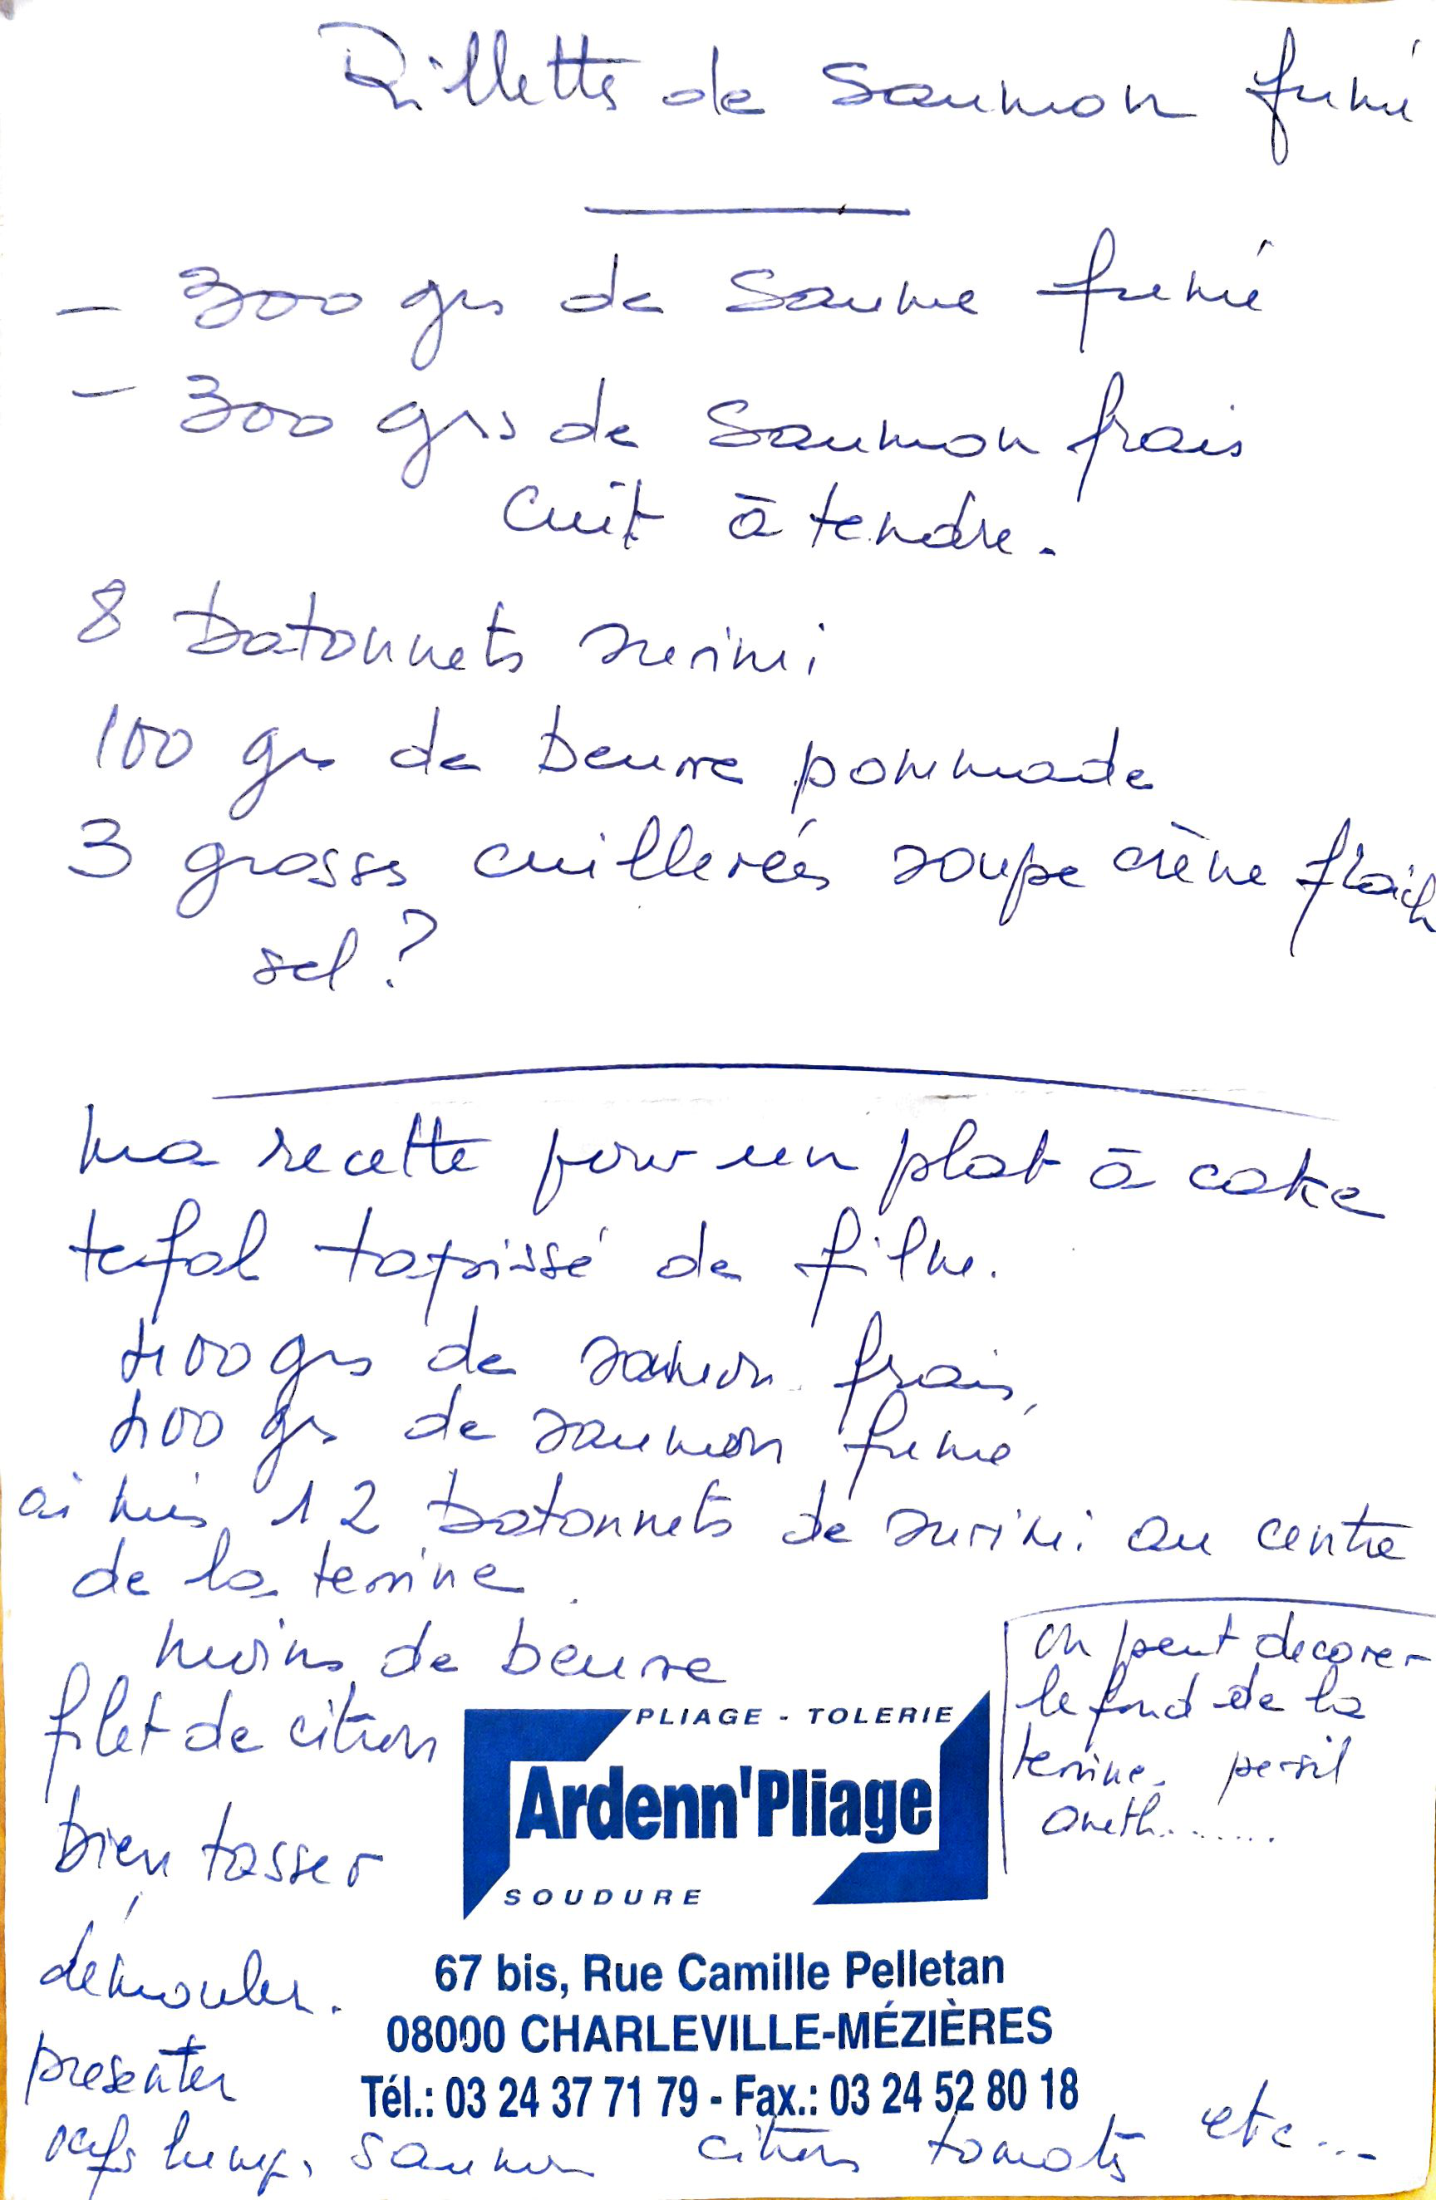 Rillettes de saumon fumé
- 300 grs de saume fumé
- 300 grs de saumon frais
cuit à tendre.
8 batonnets surimi
100 grs de beurre pommade
3 grosses cuillerées soupe crème fraich
sel ?
Ma recette pour un plat à cake
tefal tapissé de film.
400 grs de saumon frais
400 grs de saumon fumé
ai mis 12 batonnets de surimi au centre
de la terrine
moins de beurre
filet de citron
bien tasser
démouler.
presenter
oeufs lump, saumon citrons tomates etc...
on peut decorer
le fond de la
terrine. persil
aneth.......
PLIAGE - TOLERIE
Ardenn'Pliage
SOUDURE
67 bis, Rue Camille Pelletan
08000 CHARLEVILLE-MÉZIÈRES
Tél.: 03 24 37 71 79 - Fax.: 03 24 52 80 18